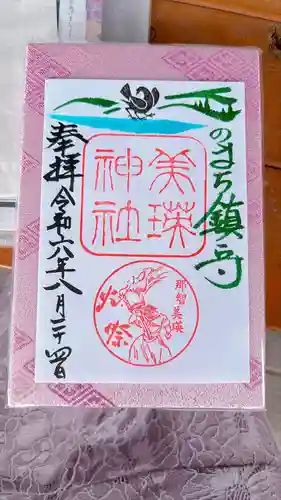 丘のまち鎮守
美瑛
神社
那智美瑛
火祭
奉拝 令和六年八月二十四日